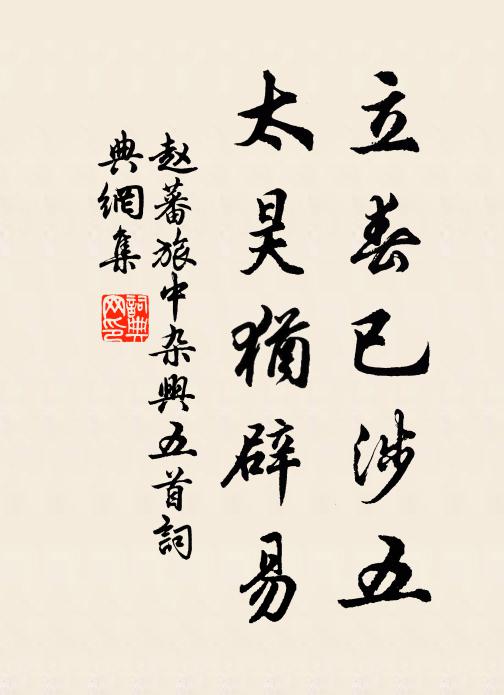 立春已涉五
太昊猶辟易
赵蕃旅中杂興五首詞
典網集
詞典网印